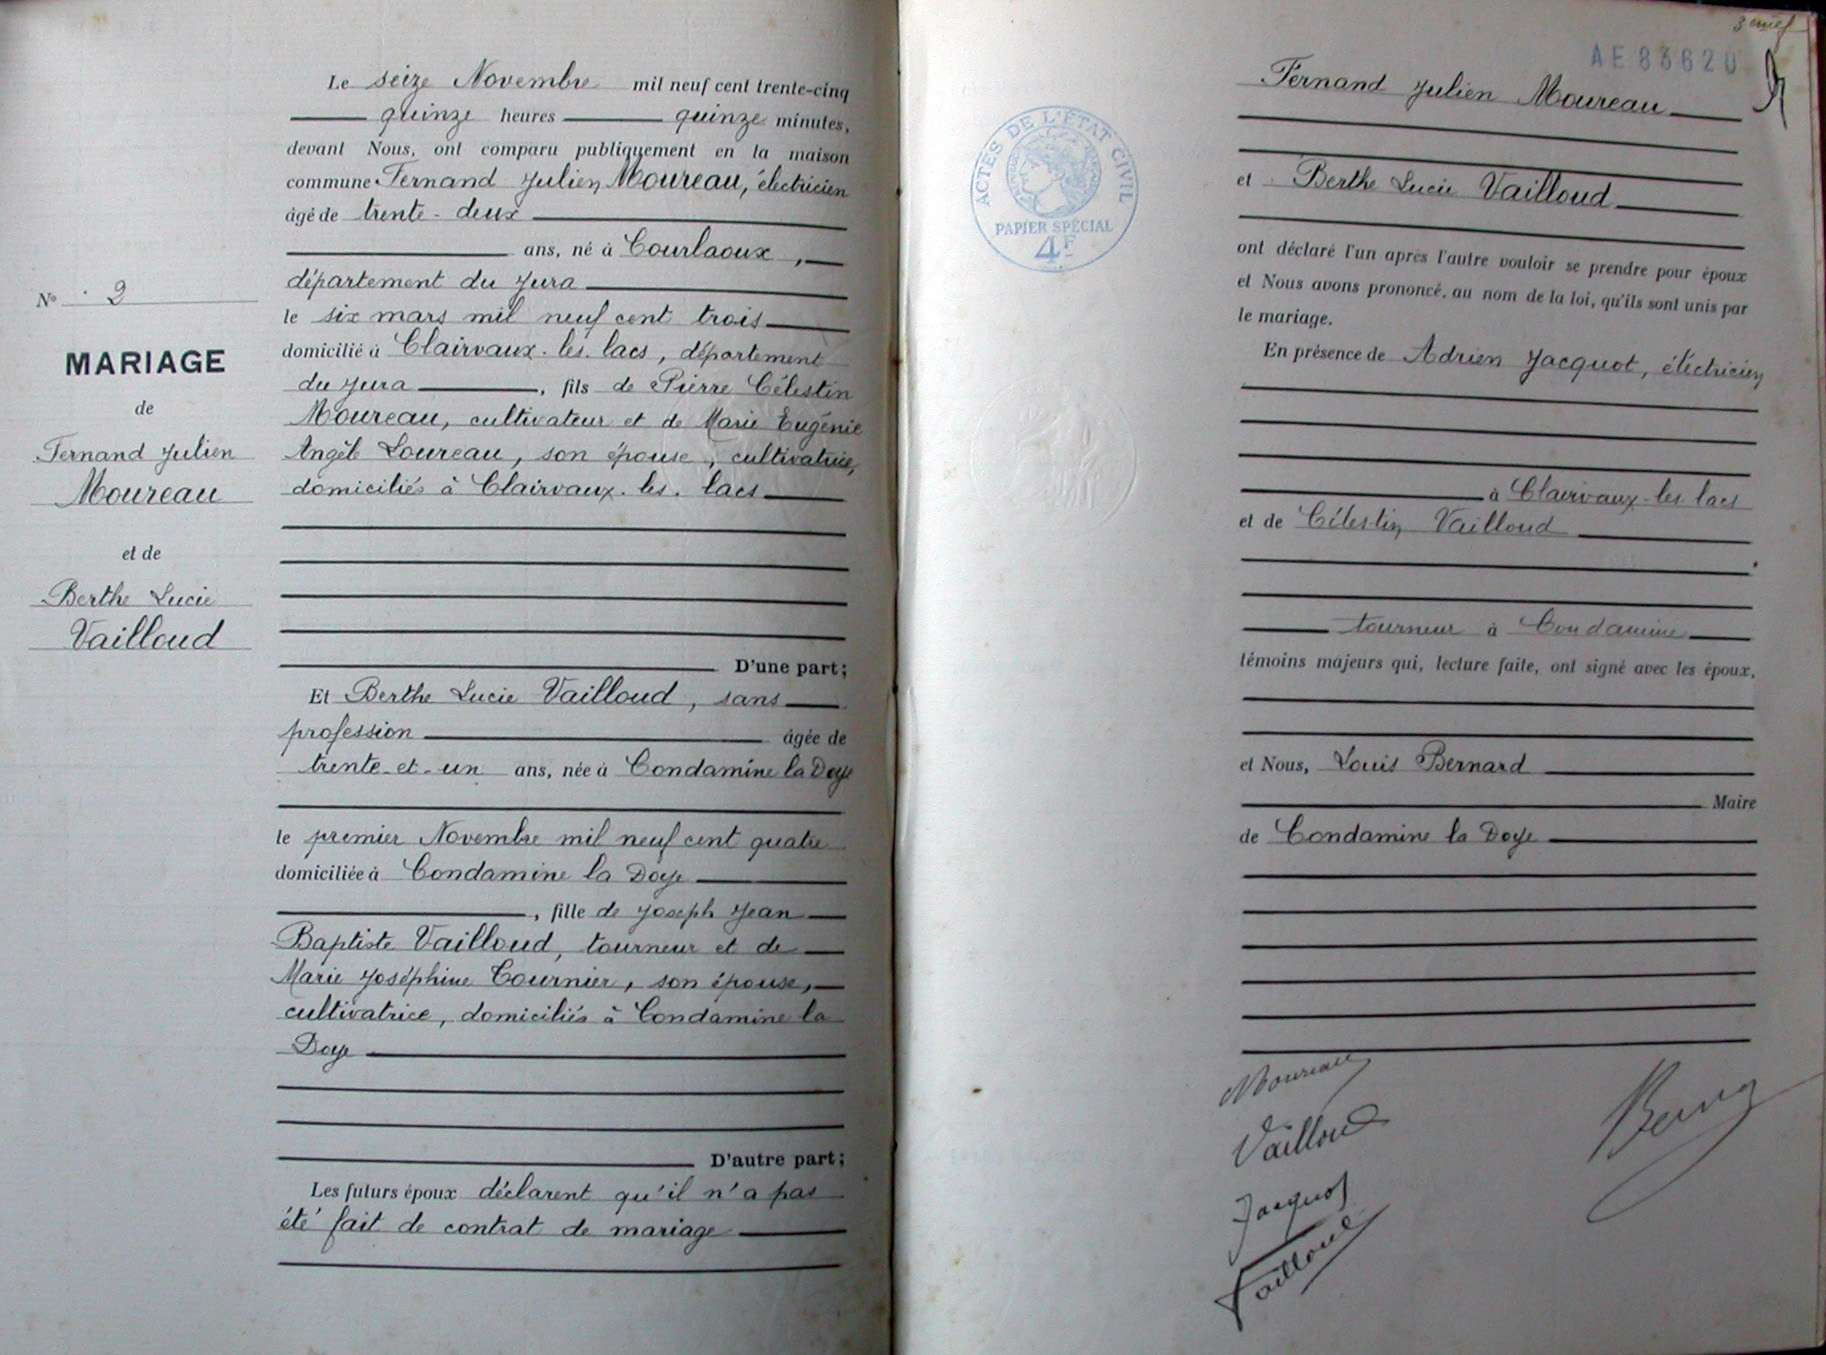 N° 2
MARIAGE
de
Fernand Julien
Moureau
et de
Berthe Lucie
Vailloud
Le seize Novembre mil neuf cent trente-cinq
quinze heures quinze minutes,
devant Nous, ont comparu publiquement en la maison
commune Fernand Julien Moureau, électricien
âgé de trente-deux
ans, né à Courlaoux,
département du Jura
le six mars mil neuf cent trois
domicilié à Clairvaux-les-lacs, département
du Jura, fils de Pierre Célestin
Moureau, cultivateur et de Marie Eugénie
Angèle Loureau, son épouse, cultivatrice,
domiciliés à Clairvaux-les-lacs
D'une part;
Et Berthe Lucie Vailloud, sans
profession âgée de
trente-et-un ans, née à Condamine la Doye
le premier Novembre mil neuf cent quatre
domiciliée à Condamine la Doye
, fille de Joseph Jean
Baptiste Vailloud, tourneur et de
Marie Joséphine Tournier, son épouse,
cultivatrice, domiciliés à Condamine la
Doye
D'autre part;
Les futurs époux déclarent qu'il n'a pas
été fait de contrat de mariage
AE 83620
ACTES DE L'ÉTAT CIVIL
PAPIER SPÉCIAL
4F
Fernand Julien Moureau
et Berthe Lucie Vailloud
ont déclaré l'un après l'autre vouloir se prendre pour époux
et Nous avons prononcé, au nom de la loi, qu'ils sont unis par
le mariage.
En présence de Adrien Jacquot, électricien
à Clairvaux-les-lacs
et de Célestin Vailloud
tourneur à Condamine
témoins majeurs qui, lecture faite, ont signé avec les époux,
et Nous, Louis Bernard
Maire
de Condamine la Doye
Moureau
Vailloud
Jacquot
Vailloud